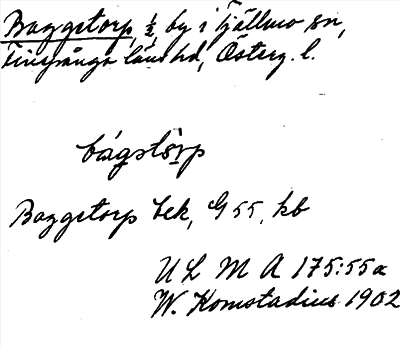 Baggetorp, ½ by i Tjällmo sn,
Finspånga läns hd, Österg. l.
bágstò̱rp
Baggetorp bek, G 55, kb
U L M A 175:55a
W. Komstadius 1902